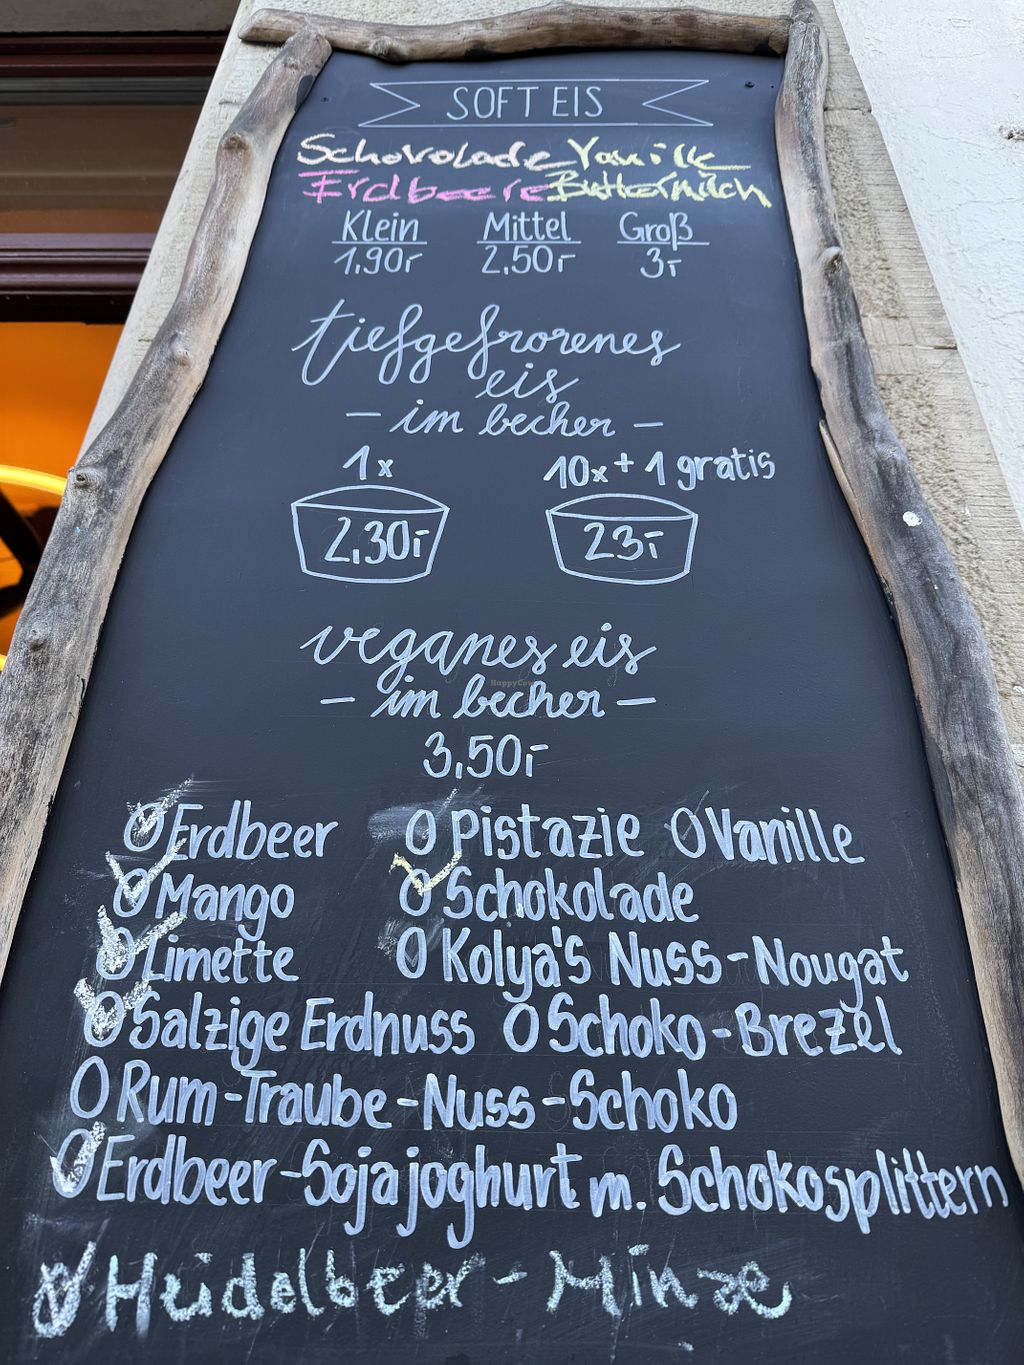 SOFT EIS
Schokolade Vanille
Erdbeere Buttermilch
Klein Mittel Groß
1,90,- 2,50,- 3,-
tiefgefrorenes
eis
- im becher -
1x 10x + 1 gratis
2,30,- 23,-
veganes eis
- im becher -
3,50,-
O Erdbeer O Pistazie O Vanille
O Mango O Schokolade
O Limette O Kolya's Nuss-Nougat
O Salzige Erdnuss O Schoko-Brezel
O Rum-Traube-Nuss-Schoko
O Erdbeer-Sojajoghurt m. Schokosplittern
O Heidelbeer-Minze
HappyCow